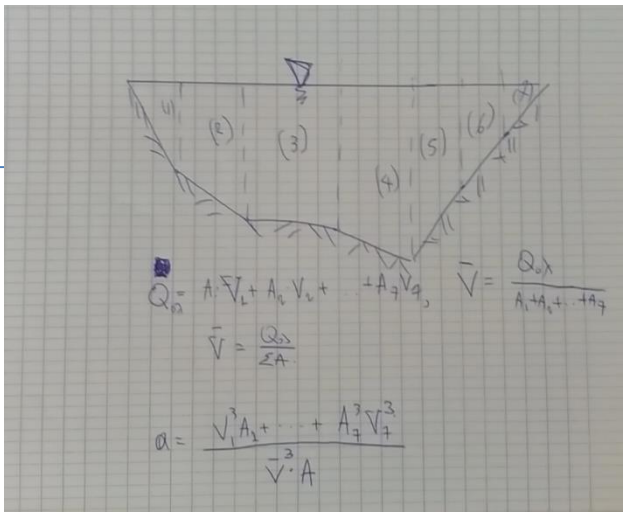 (1) (2) (3) (4) (5) (6) (7)
Qολ = A₁V₁ + A₂V₂ + ... + A₇V₇, V̄ = Qολ / A₁+A₂+...+A₇
V̄ = Qολ / ΣA
a = V₁³A₁ + ... + A₇³V₇³ / V̄³·A